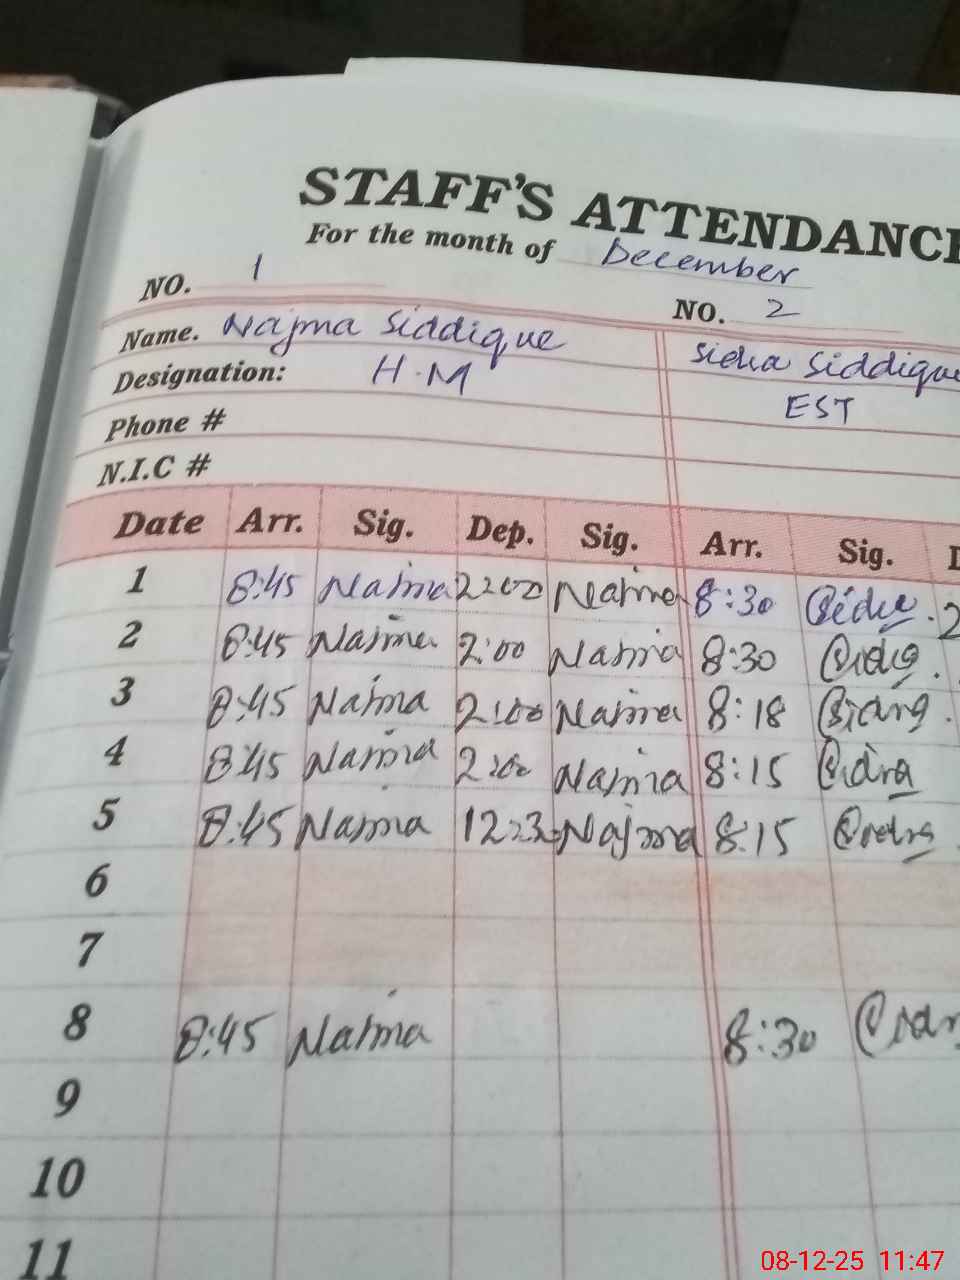 STAFF'S ATTENDANC
For the month of December
NO. 1 NO. 2
Name. Najma Siddique Sidra Siddique
Designation: H.M EST
Phone #
N.I.C #
Date Arr. Sig. Dep. Sig. Arr. Sig. D
1 8:45 Najma 2:00 Najma 8:30 Sidra 2
2 8:45 Najma 2:00 Najma 8:30 Sidra
3 8:45 Najma 2:00 Najma 8:18 Sidra
4 8:45 Najma 2:00 Najma 8:15 Sidra
5 8:45 Najma 12:30 Najma 8:15 Sidra
6
7
8 8:45 Najma 8:30 Sidr
9
10
11
08-12-25 11:47